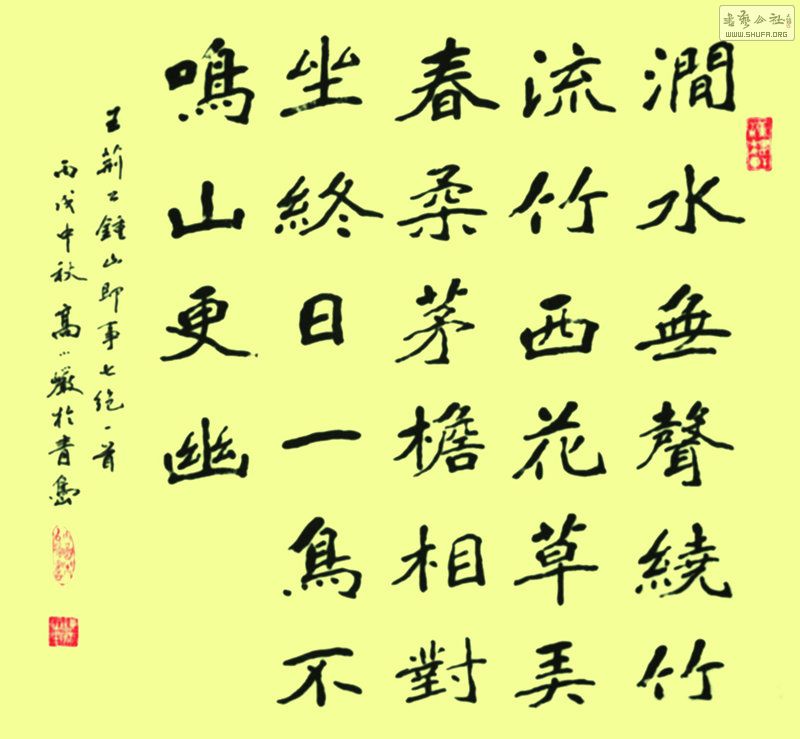 澗水無聲繞竹
流竹西花草弄
春柔茅檐相對
坐終日一鳥不
鳴山更幽
王荊公鍾山即事七絕一首
丙戌中秋高小巖於青島
书艺公社
WWW.SHUFA.ORG